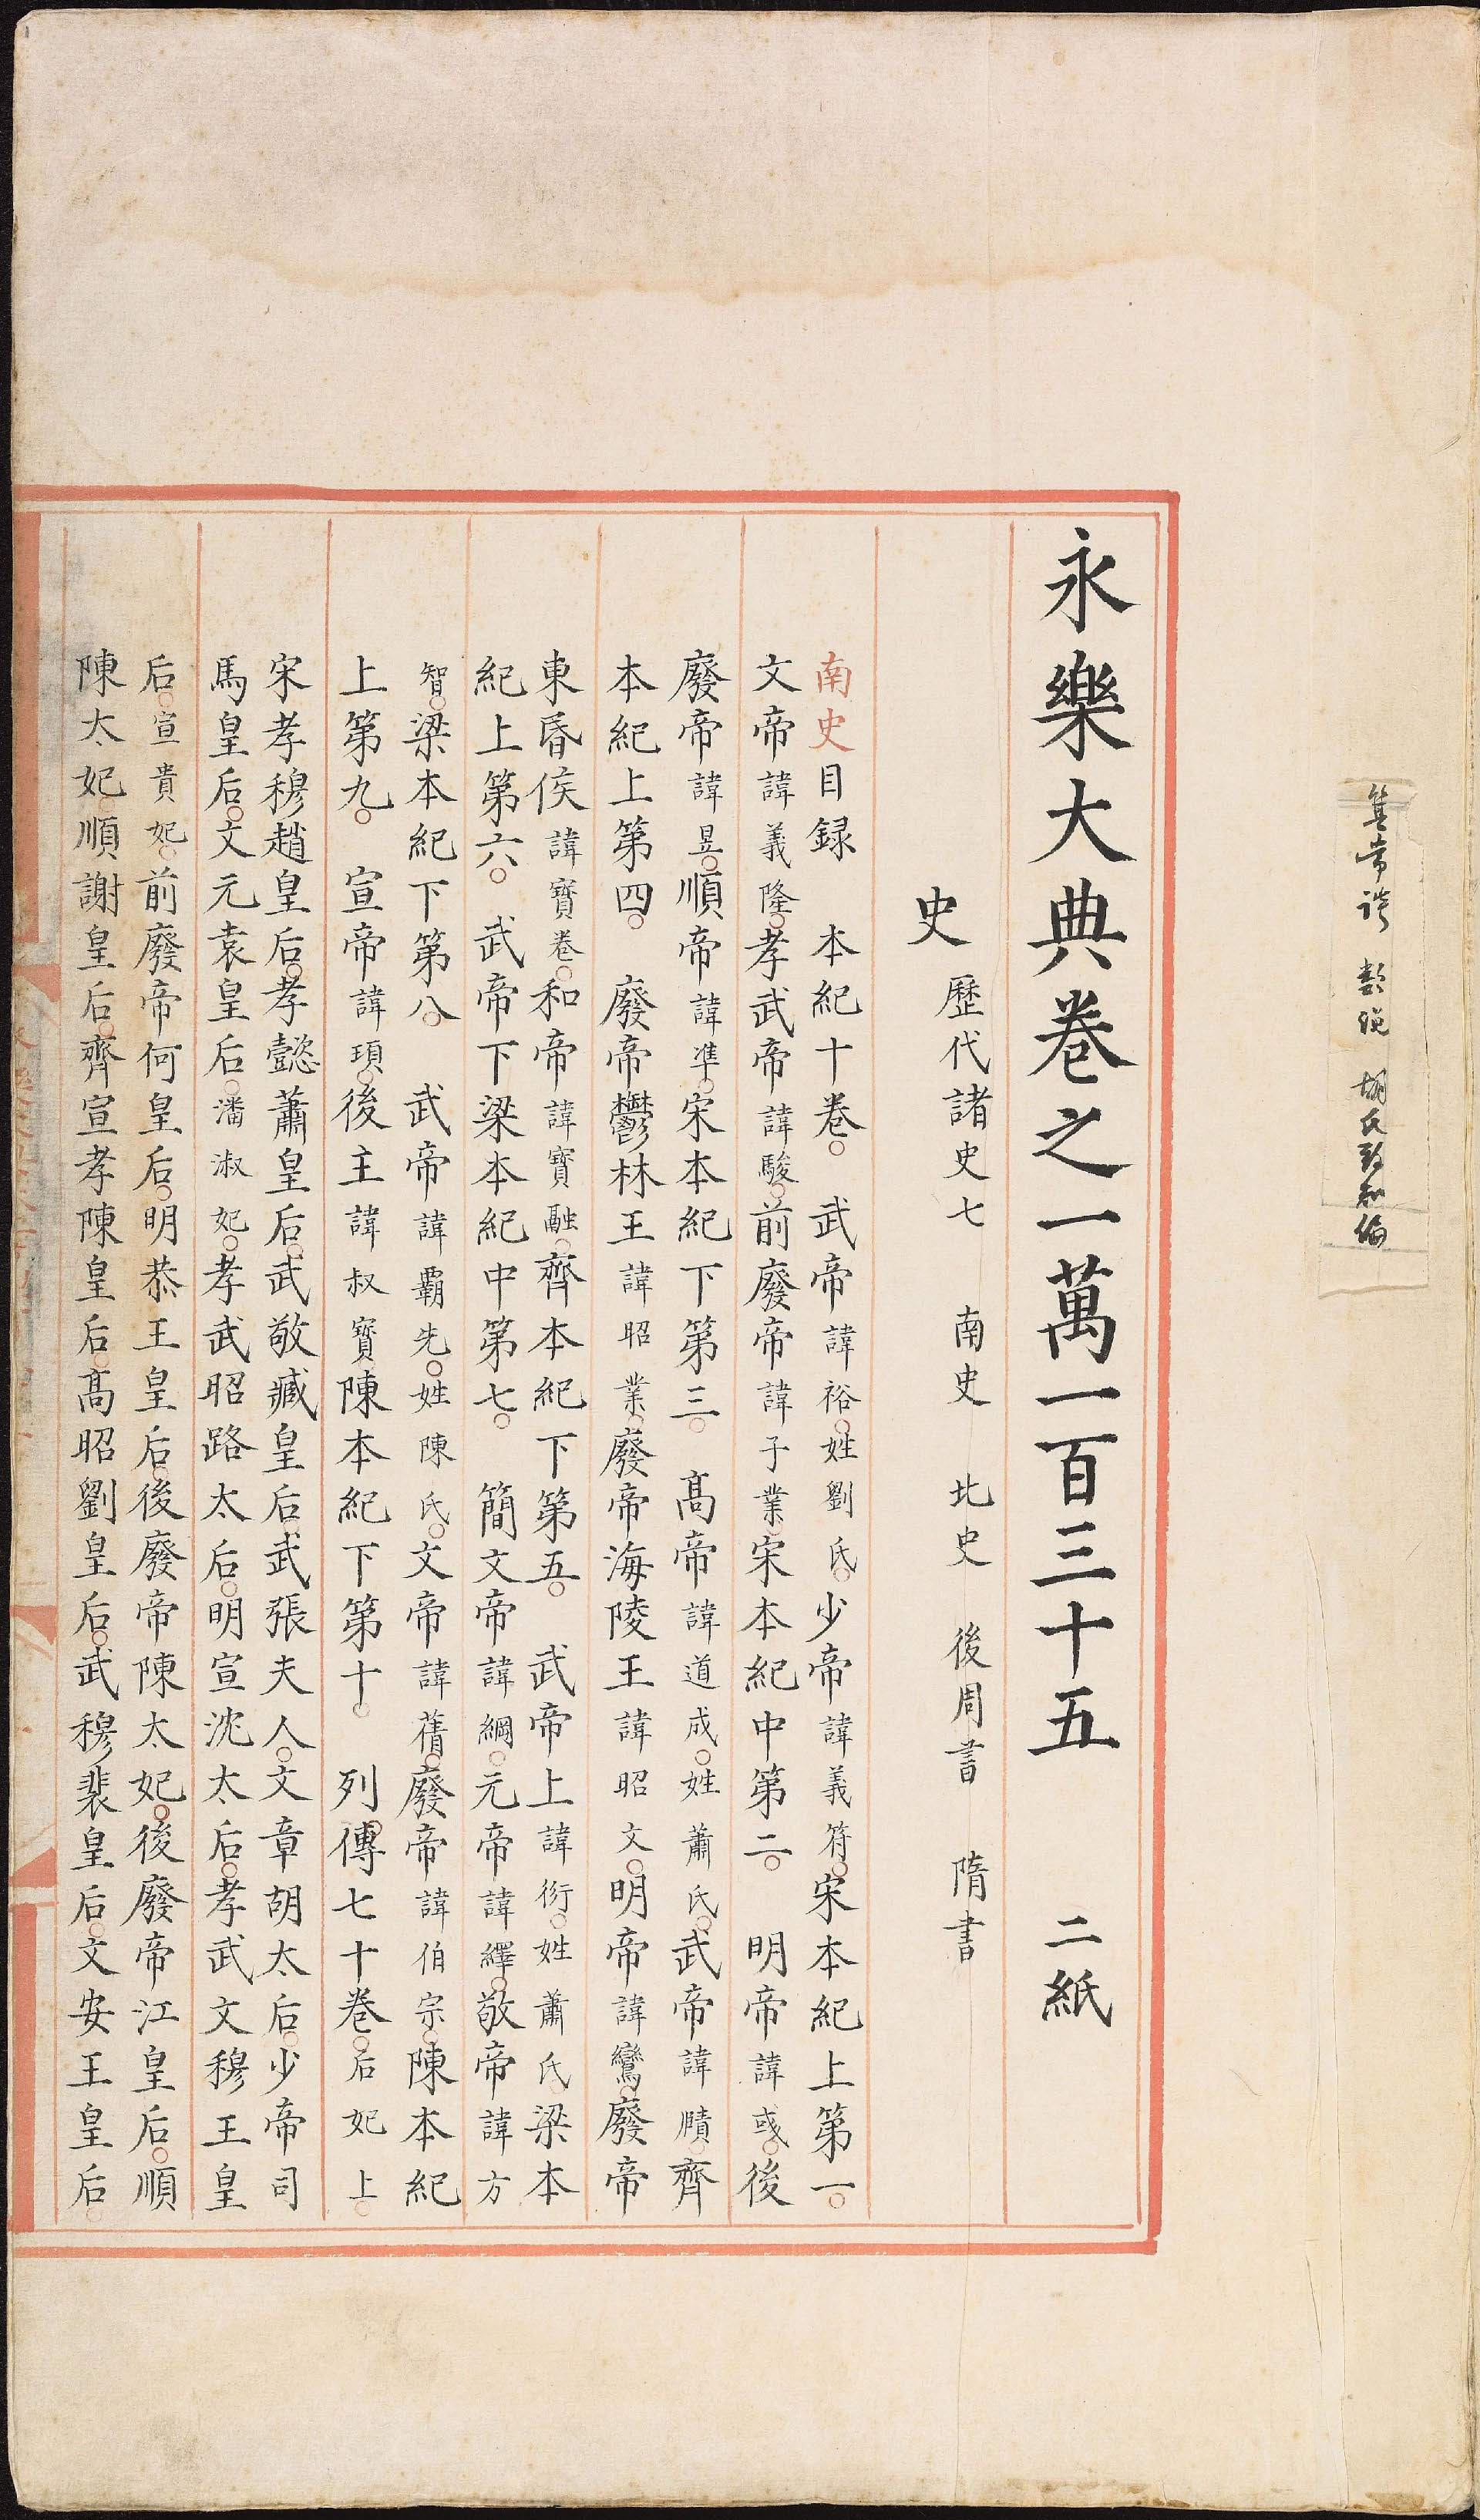 永樂大典卷之一萬一百三十五 二紙
史 歷代諸史七 南史 北史 後周書 隋書
南史目録 本紀十卷○ 武帝諱裕○姓劉氏○少帝諱義符○宋本紀上第一○
文帝諱義隆○孝武帝諱駿○前廢帝諱子業○宋本紀中第二○ 明帝諱彧○後
廢帝諱昱○順帝諱準○宋本紀下第三○ 髙帝諱道成○姓蕭氏○武帝諱賾○齊
本紀上第四○ 廢帝鬱林王諱昭業○廢帝海陵王諱昭文○明帝諱鸞○廢帝
東昏侯諱寳卷○和帝諱寳融○齊本紀下第五○ 武帝上諱衍○姓蕭氏○梁本
紀上第六○ 武帝下梁本紀中第七○ 簡文帝諱綱○元帝諱繹○敬帝諱方
智○梁本紀下第八○ 武帝諱霸先○姓陳氏○文帝諱蒨○廢帝諱伯宗○陳本紀
上第九○ 宣帝諱頊○後主諱叔寳陳本紀下第十○ 列傳七十卷○后妃上○
宋孝穆趙皇后○孝懿蕭皇后○武敬臧皇后○武張夫人○文章胡太后○少帝司
馬皇后○文元袁皇后○潘淑妃○孝武昭路太后○明宣沈太后○孝武文穆王皇
后○宣貴妃○前廢帝何皇后○明恭王皇后○後廢帝陳太妃○後廢帝江皇后○順
陳太妃○順謝皇后○齊宣孝陳皇后○髙昭劉皇后○武穆裴皇后○文安王皇后○